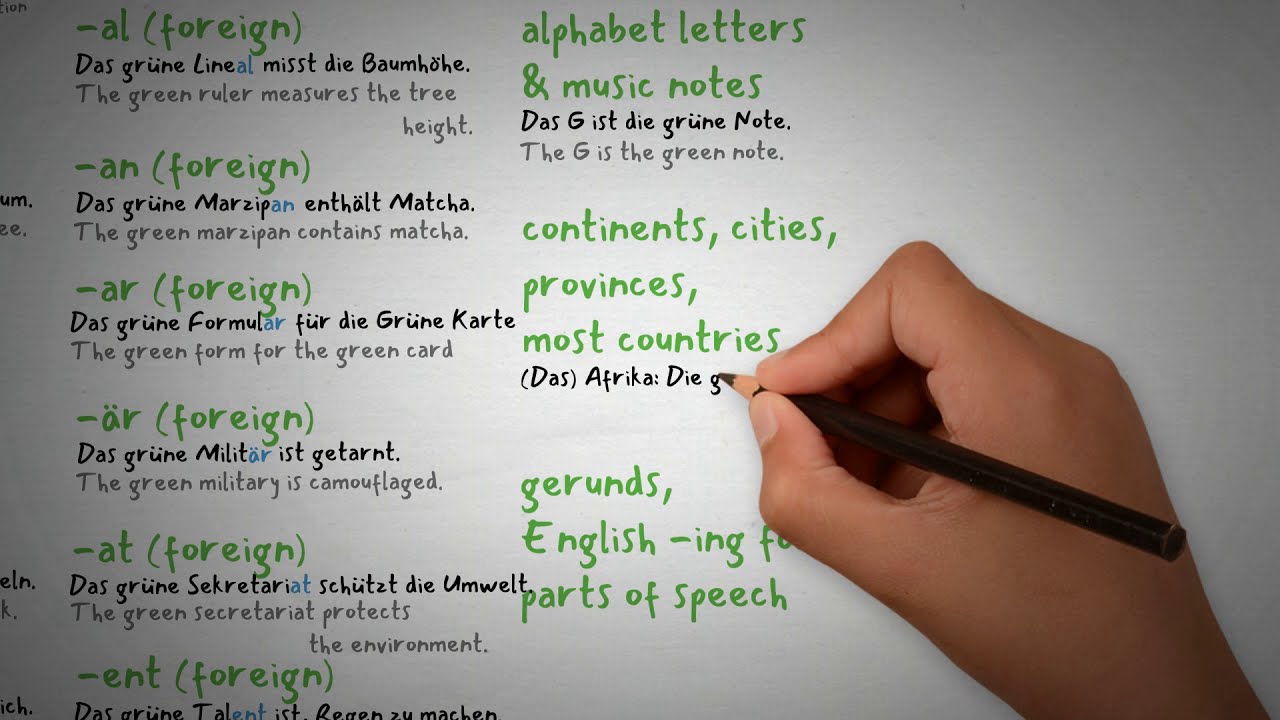 tion
um.
ee.
eln.
k.
ich.
-al (foreign)
Das grüne Lineal misst die Baumhöhe.
The green ruler measures the tree
height.
-an (foreign)
Das grüne Marzipan enthält Matcha.
The green marzipan contains matcha.
-ar (foreign)
Das grüne Formular für die Grüne Karte
The green form for the green card
-är (foreign)
Das grüne Militär ist getarnt.
The green military is camouflaged.
-at (foreign)
Das grüne Sekretariat schützt die Umwelt.
The green secretariat protects
the environment.
-ent (foreign)
Das grüne Talent ist, Regen zu machen.
alphabet letters
& music notes
Das G ist die grüne Note.
The G is the green note.
continents, cities,
provinces,
most countries
(Das) Afrika: Die g
gerunds,
English -ing fo
parts of speech